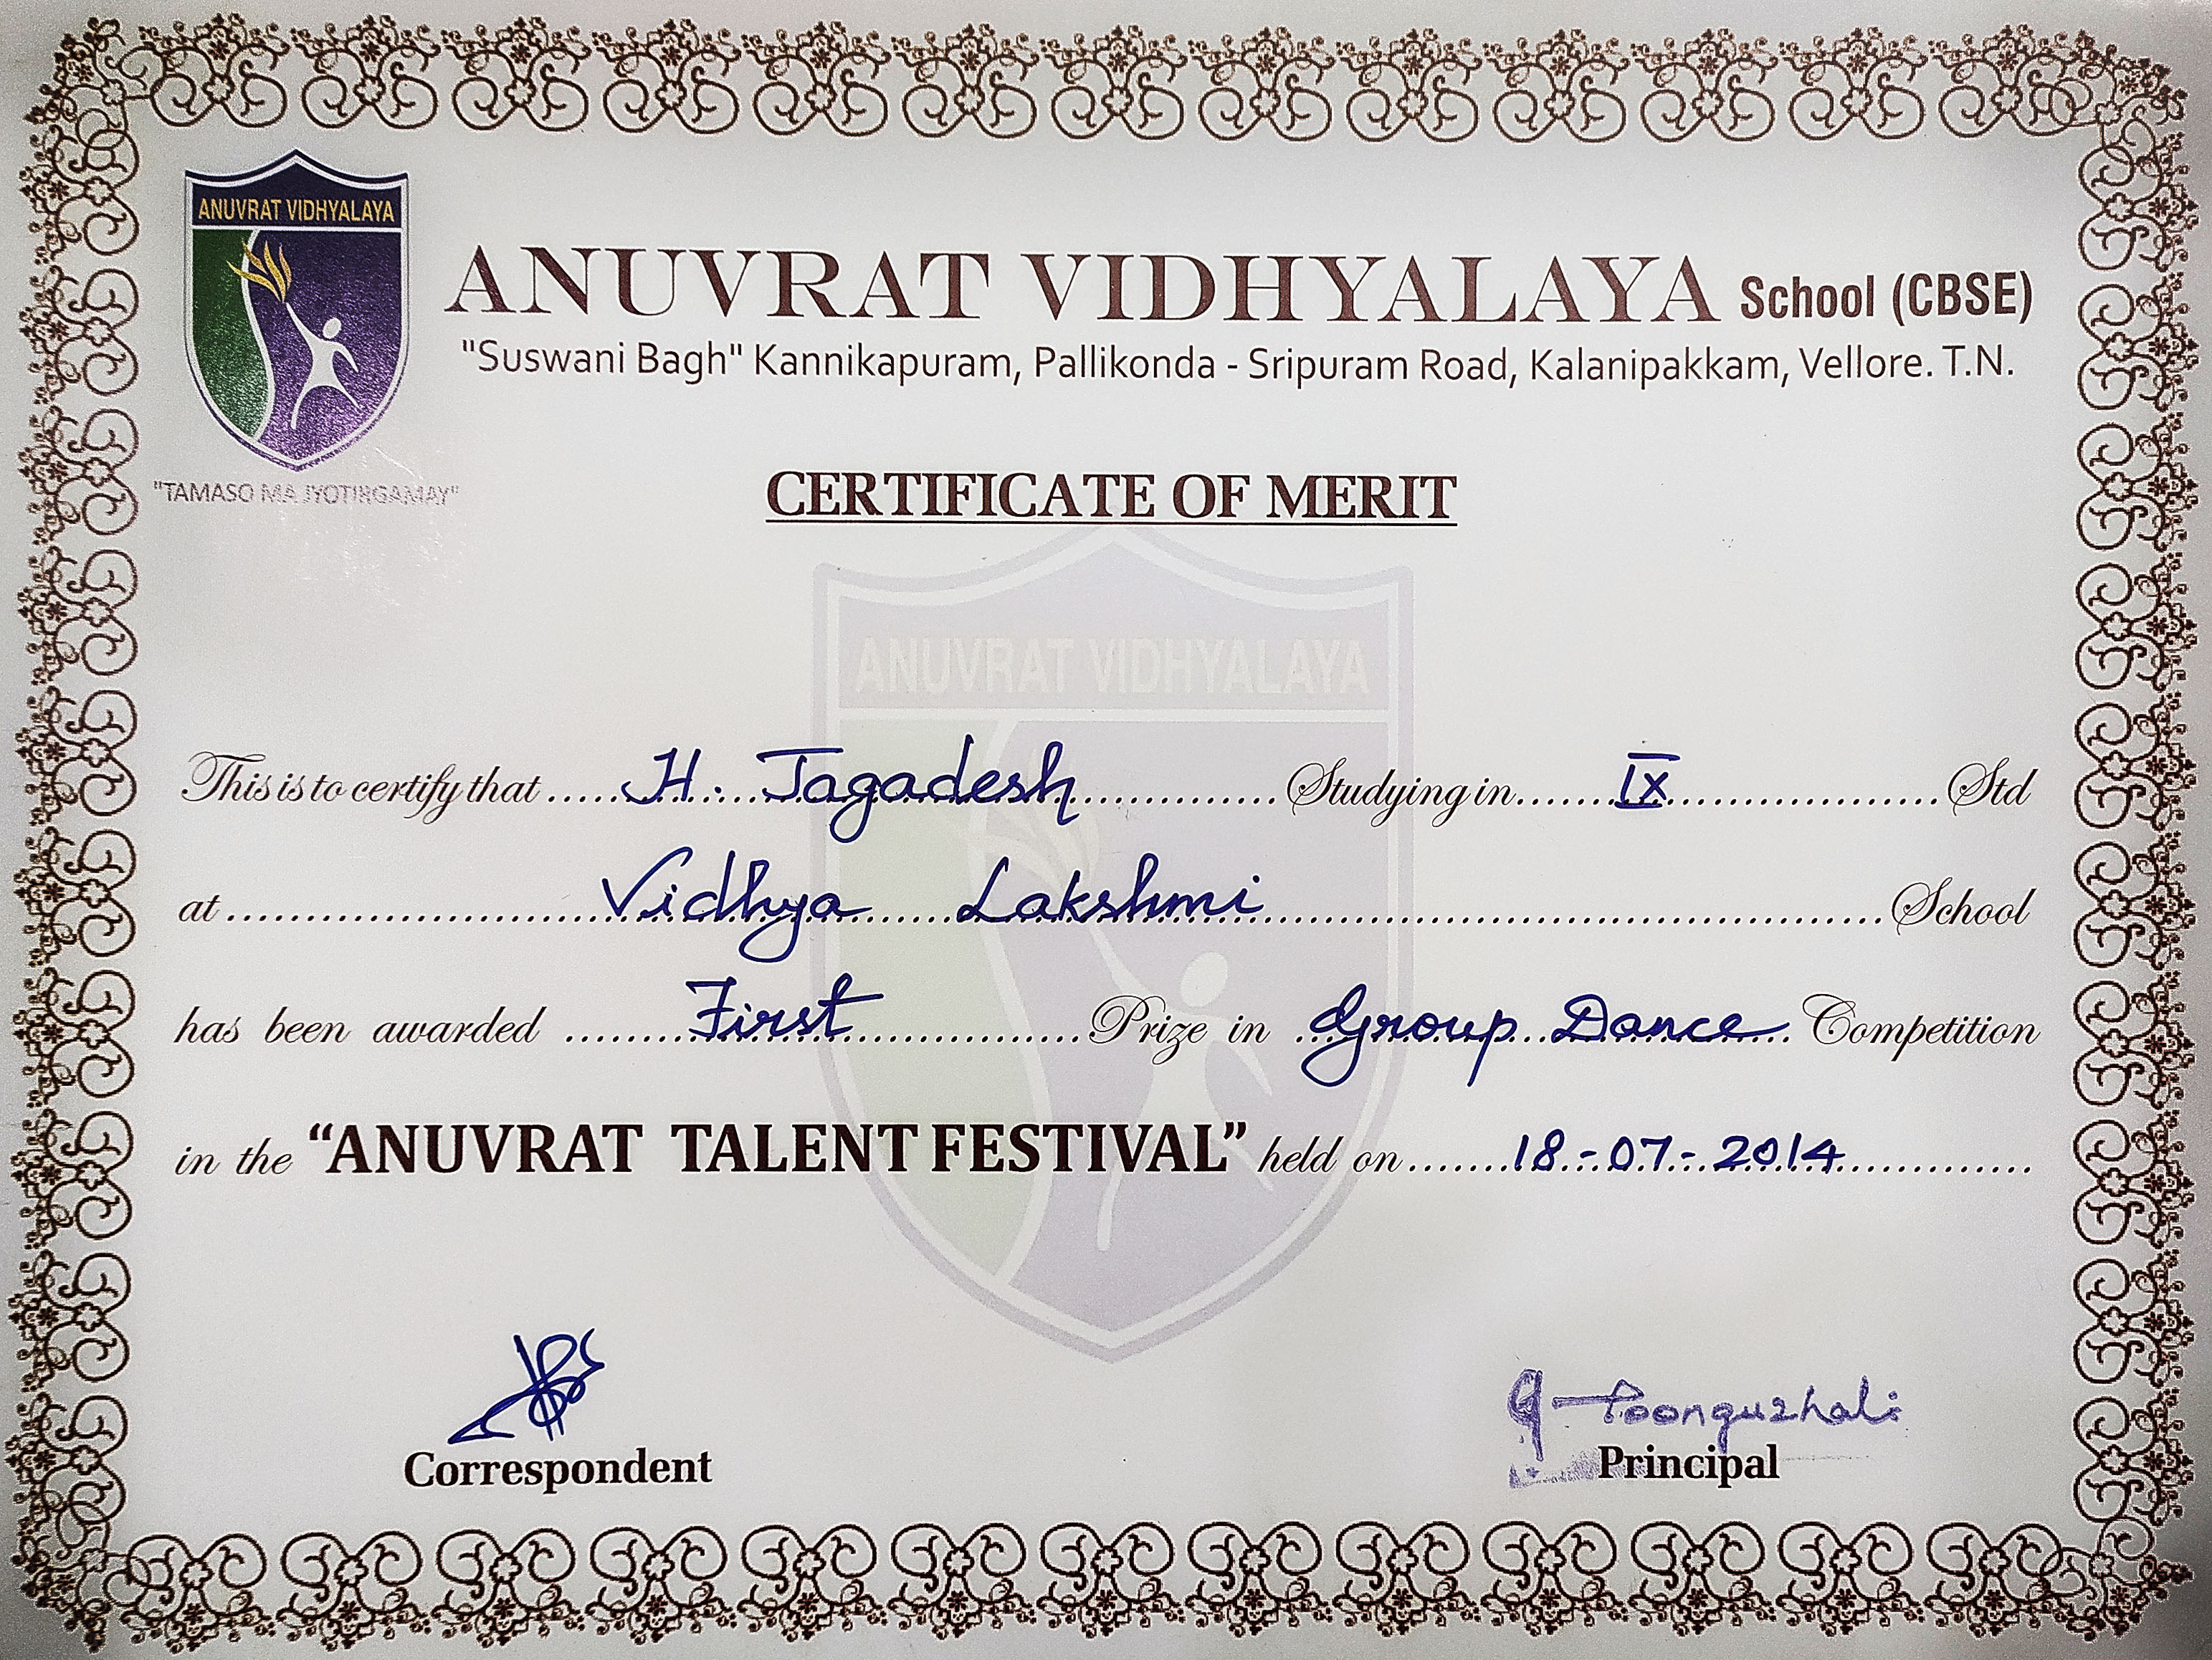 ANUVRAT VIDHYALAYA
ANUVRAT VIDHYALAYA School (CBSE)
"Suswani Bagh" Kannikapuram, Pallikonda - Sripuram Road, Kalanipakkam, Vellore. T.N.
"TAMASO MA JYOTIRGAMAY"
CERTIFICATE OF MERIT
ANUVRAT VIDHYALAYA
This is to certify that ..... H. Jagadesh ..... Studying in ..... IX ..... Std
at ..... Vidhya Lakshmi ..... School
has been awarded ..... First ..... Prize in ..... Group Dance ..... Competition
in the “ANUVRAT TALENT FESTIVAL” held on ..... 18-07-2014 .....
G Poonguzhali
Correspondent
Principal